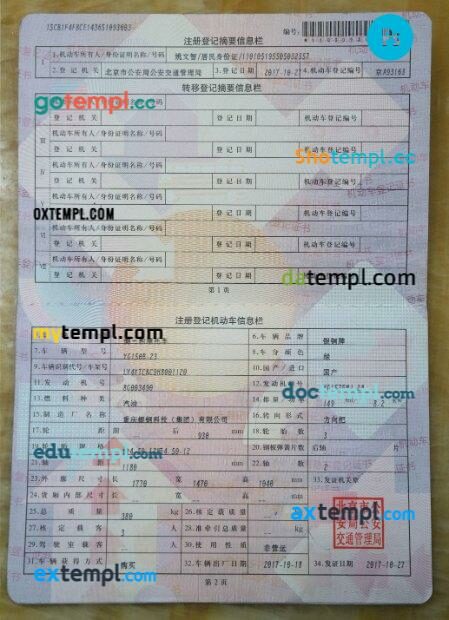 注册登记摘要信息栏
编号:
1.机动车所有人/身份证明名称/号码 姚文智/居民身份证/
2.登记机关 北京市公安局公安交通管理局 3.登记日期 2017-10-27 4.机动车登记编号 京A93163
转移登记摘要信息栏
gotempl.cc
登记机关 登记日期 机动车登记编号
机动车所有人/身份证明名称/号码
Shotempl.cc
登记机关 登记日期 机动车登记编号
机动车所有人/身份证明名称/号码
登记机关 登记日期 机动车登记编号
OXTEMPL.COM
机动车所有人/身份证明名称/号码
登记机关 登记日期 机动车登记编号
机动车所有人/身份证明名称/号码
登记机关 登记日期
datempl.com
第1页
注册登记机动车信息栏
mytempl.com
6.车辆品牌 银钢牌
7.车辆型号 YG150B-23 8.车身颜色 绿
9.车辆识别代号/车架号 10.国产/进口 国产
11.发动机号 8G003490 12.发动机型号
13.燃料种类 汽油 14.排量/功率 149 8.2
doctempl.com
15.制造厂名称 重庆银钢科技(集团)有限公司 16.转向形式 方向把
17.轮距 后 930 mm 18.轮胎数 3
20.钢板弹簧片数 后轴 片
edutempl.com
21.轴距 1180 mm 22.轴数 2
23.外廓尺寸 长 1770 宽 1470 高 1040 mm 33.发证机关章
24.货厢内部尺寸 长 宽 高 mm
25.总质量 380 kg 26.核定载质量
27.核定载客 3 人 28.准牵引总质量
axtempl.com
北京市公安局公安交通管理局
29.驾驶室载客 人 30.使用性质 非营运
31.车辆获得方式 购买 32.车辆出厂日期 2017-10-10 34.发证日期 2017-10-27
extempl.com
第2页